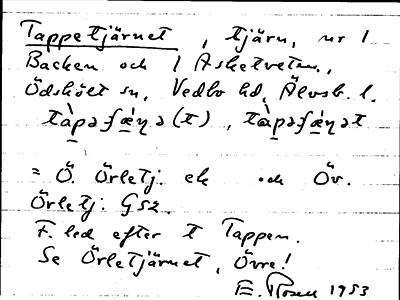 Tappetjärnet, tjärn, nr 1
Backen och 1 Asketveten.,
Ödskölt sn, Vedbo hd, Älvsb. l.
tàpəʃæ̀ɳə(t), tàpəʃæ̀ɳət
= Ö. Örletj. ek och Öv.
Örletj. GSz.
F. led efter t Tappen.
Se Örletjärnet, Övre!
E. Rosell 1953